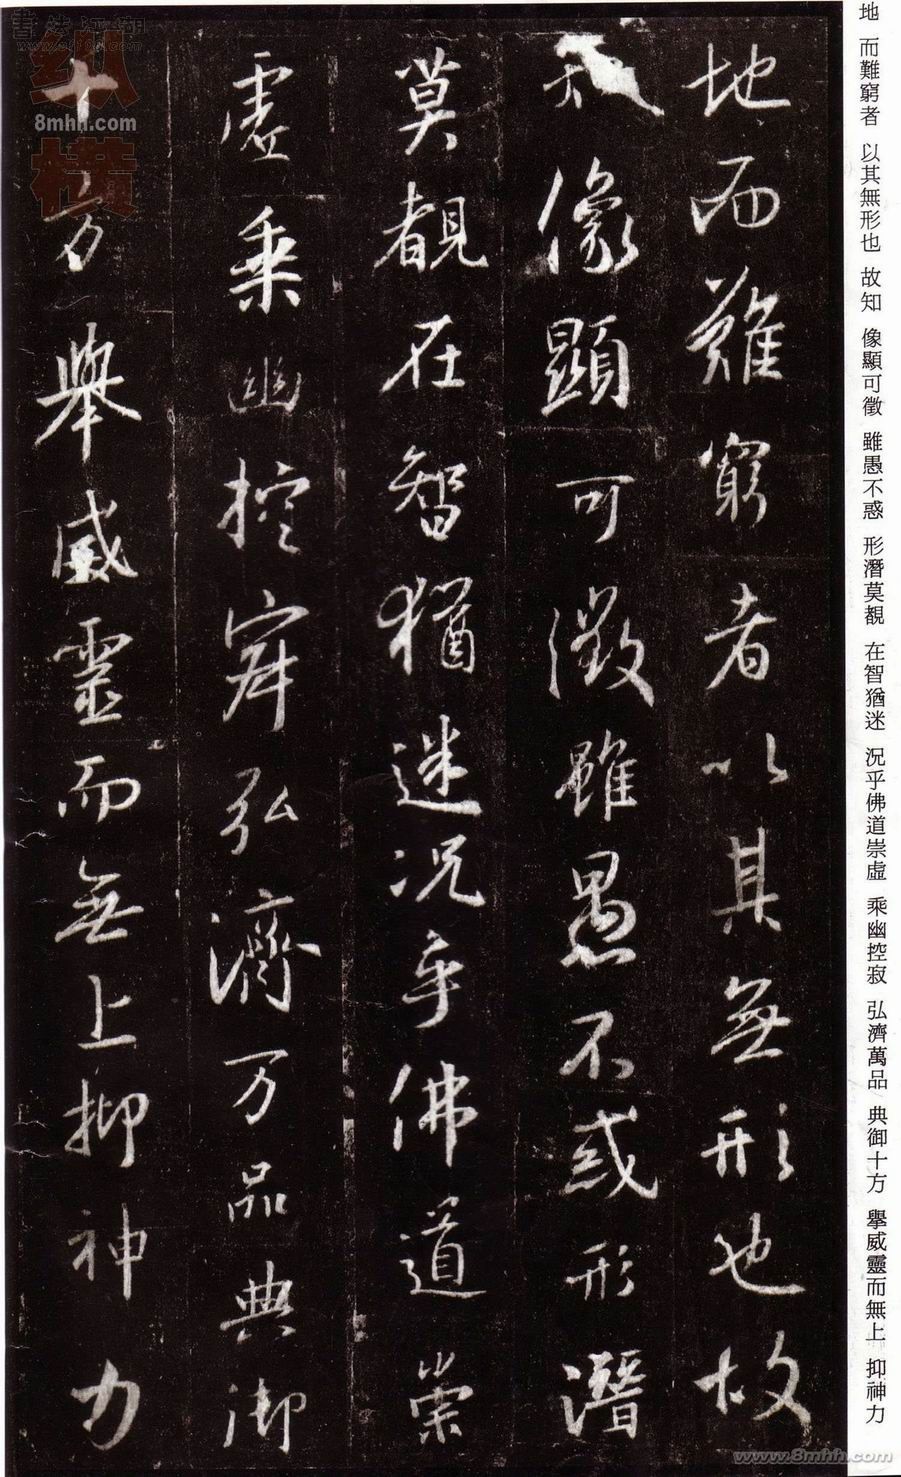 地 而難窮者 以其無形也 故知 像顯可徵 雖愚不惑 形潛莫覩 在智猶迷 況乎佛道崇虛 乘幽控寂 弘濟萬品 典御十方 擧威靈而無上 抑神力
地而難窮者以其無形也故
像顯可徵雖愚不或形潛
莫覩在智猶迷況乎佛道崇
虛乘幽控寂弘濟万品典御
十方舉威靈而無上抑神力
縱橫
8mhh.com
www.8mhh.com